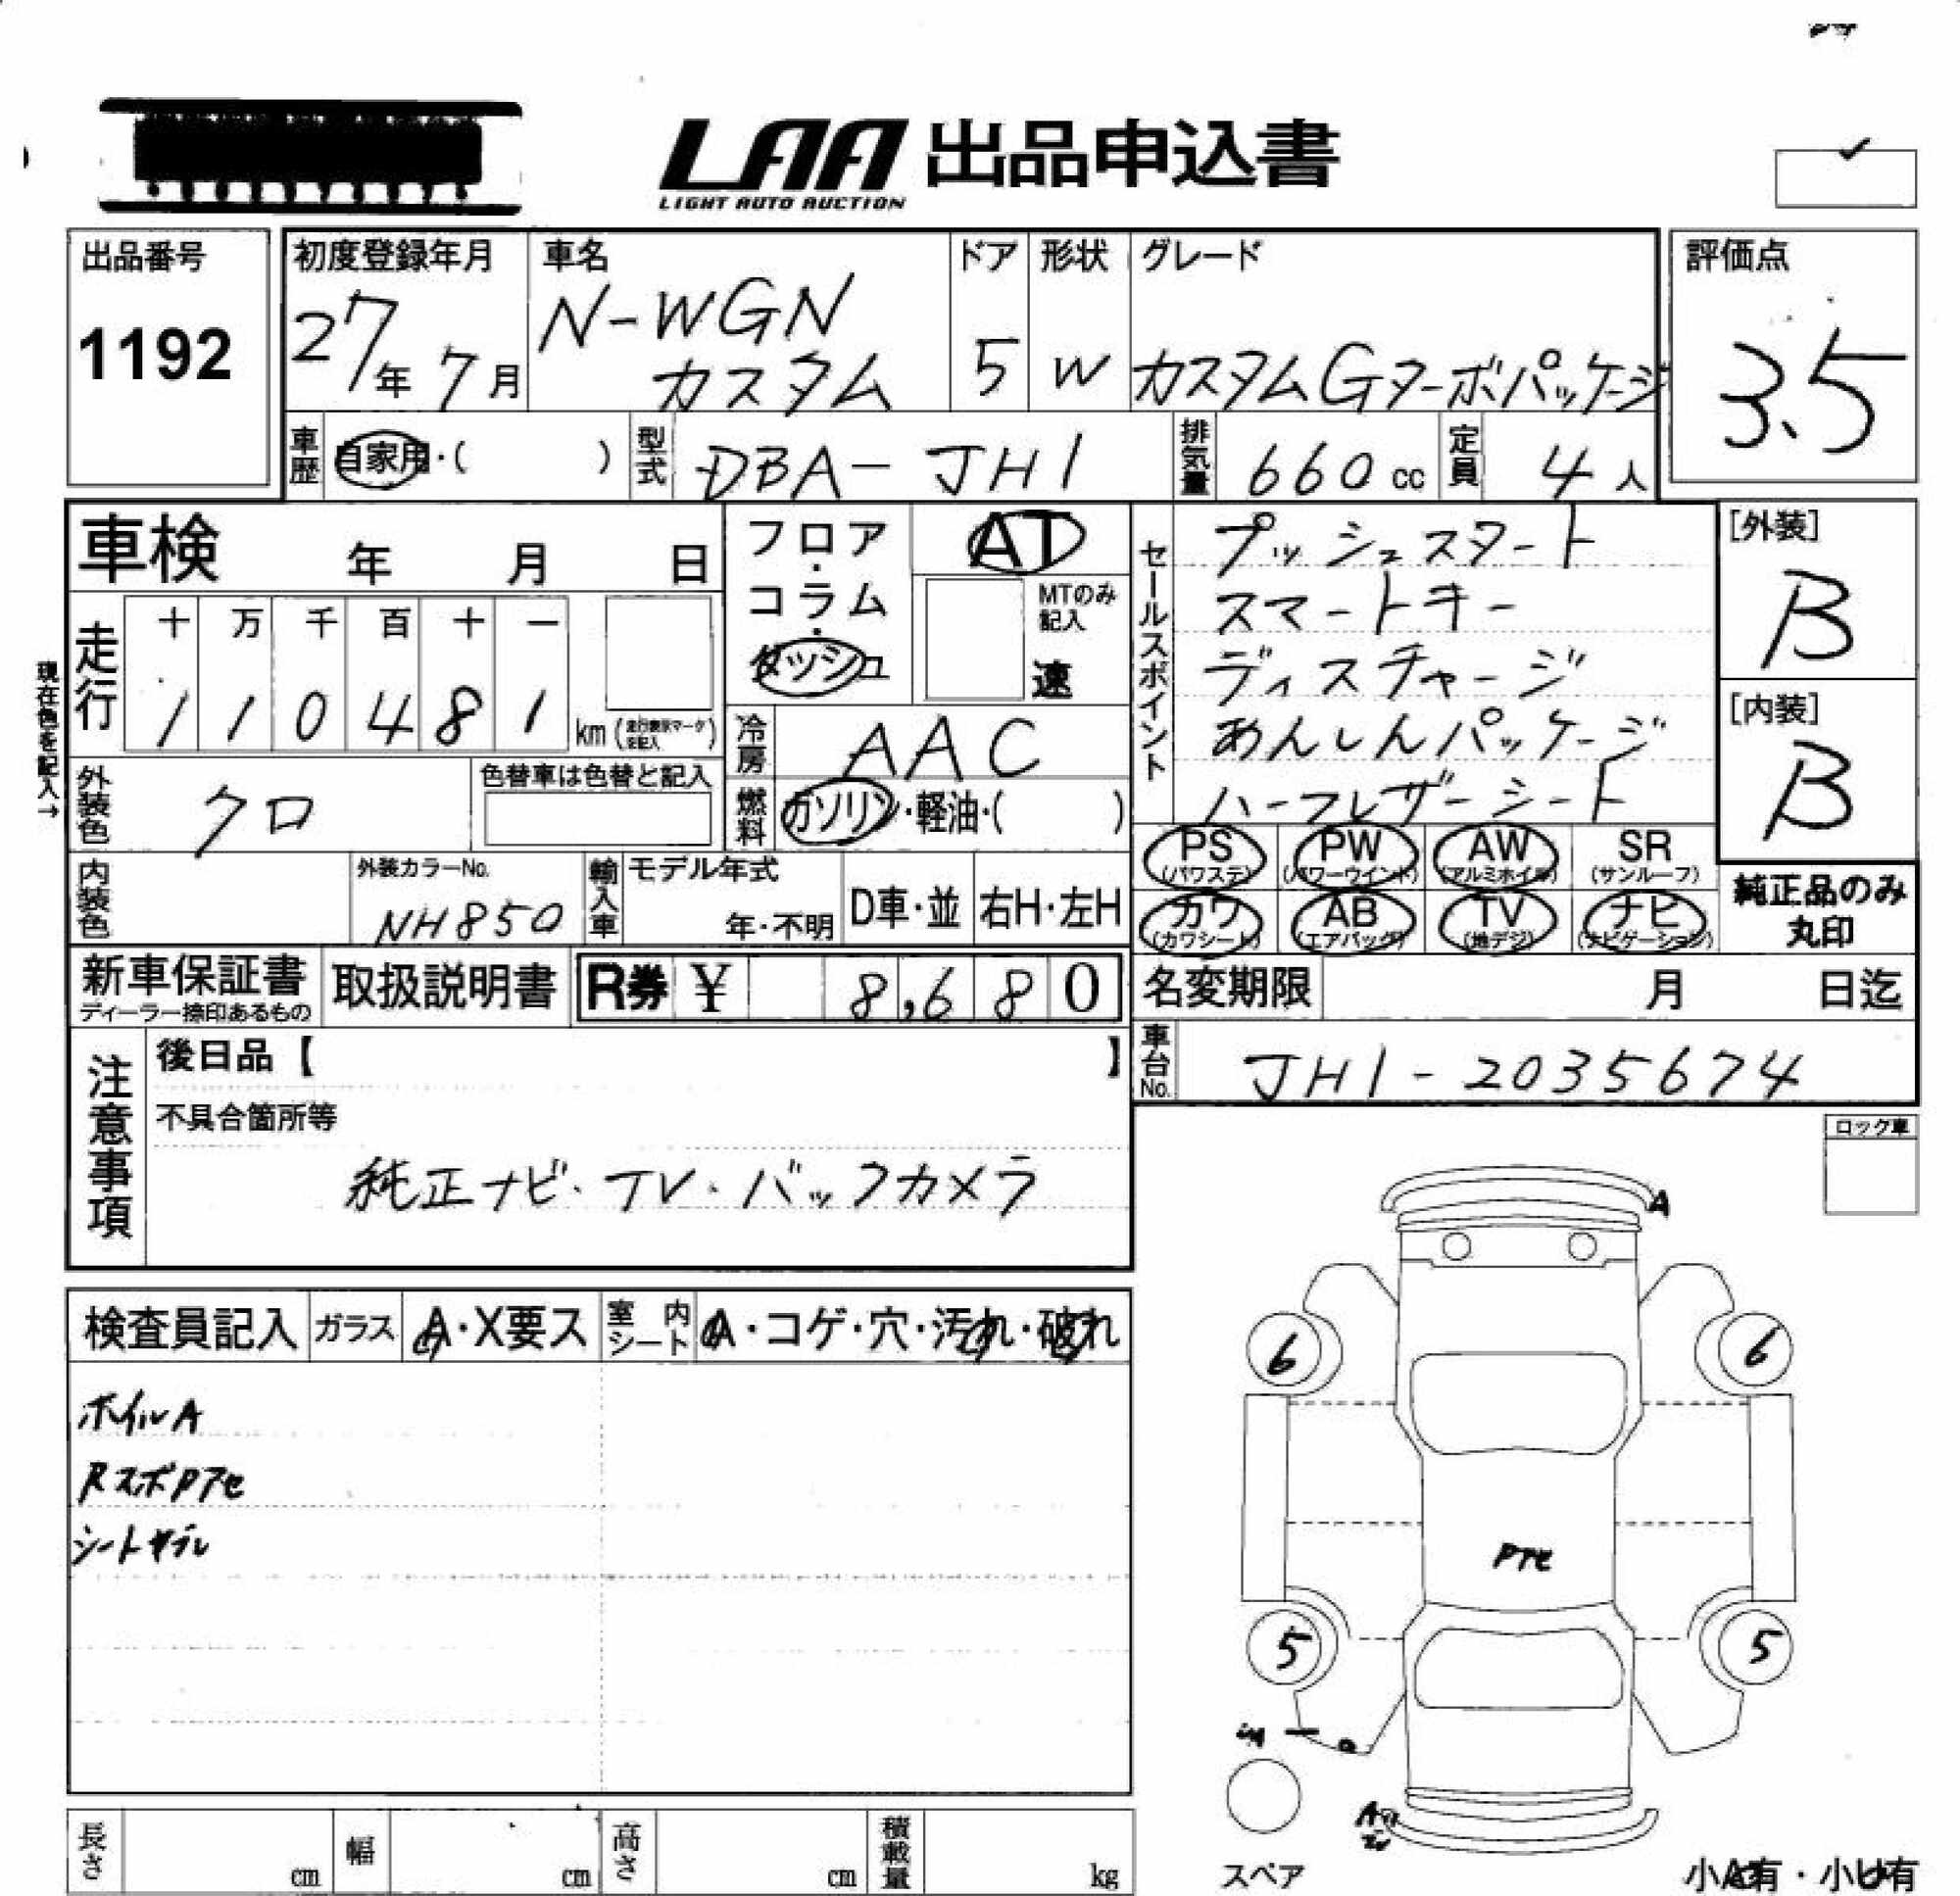 LAA 出品申込書
LIGHT AUTO AUCTION
出品番号
1192
初度登録年月
27年 7月
車名
N-WGN
カスタム
ドア
5
形状
W
グレード
カスタムGターボパッケージ
評価点
3.5
車歴 自家用・( )
型式 DBA-JH1
排気量 660 cc
定員 4人
車検 年 月 日
フロア・コラム・ダッシュ
AT
MTのみ記入
速
セールスポイント
プッシュスタート
スマートキー
ディスチャージ
あんしんパッケージ
ハーフレザーシート
[外装]
B
[内装]
B
現在色を記入→
走行
十 万 千 百 十 一
1 1 0 4 8 1 km
冷房 AAC
外装色 クロ
色替車は色替と記入
燃料 ガソリン・軽油・( )
PS (パワステ)
PW (パワーウインド)
AW (アルミホイル)
SR (サンルーフ)
カワ (カワシート)
AB (エアバッグ)
TV (地デジ)
ナビ (ナビゲーション)
純正品のみ
丸印
内装色
外装カラーNo.
NH850
輸入車
モデル年式
年・不明
D車・並
右H・左H
新車保証書
ディーラー捺印あるもの
取扱説明書
R券 ¥ 8,680
名変期限 月 日迄
車台No. JH1-2035674
注意事項
後日品【 】
不具合箇所等
純正ナビ・TV・バックカメラ
ロック車
検査員記入
ガラス A・X要ス
室内シート A・コゲ・穴・汚れ・破れ
ホイルA
RスポPアセ
シートヤブレ
A
6
6
Pアセ
5
5
スペア
小A有・小U有
長さ cm
幅 cm
高さ cm
積載量 kg